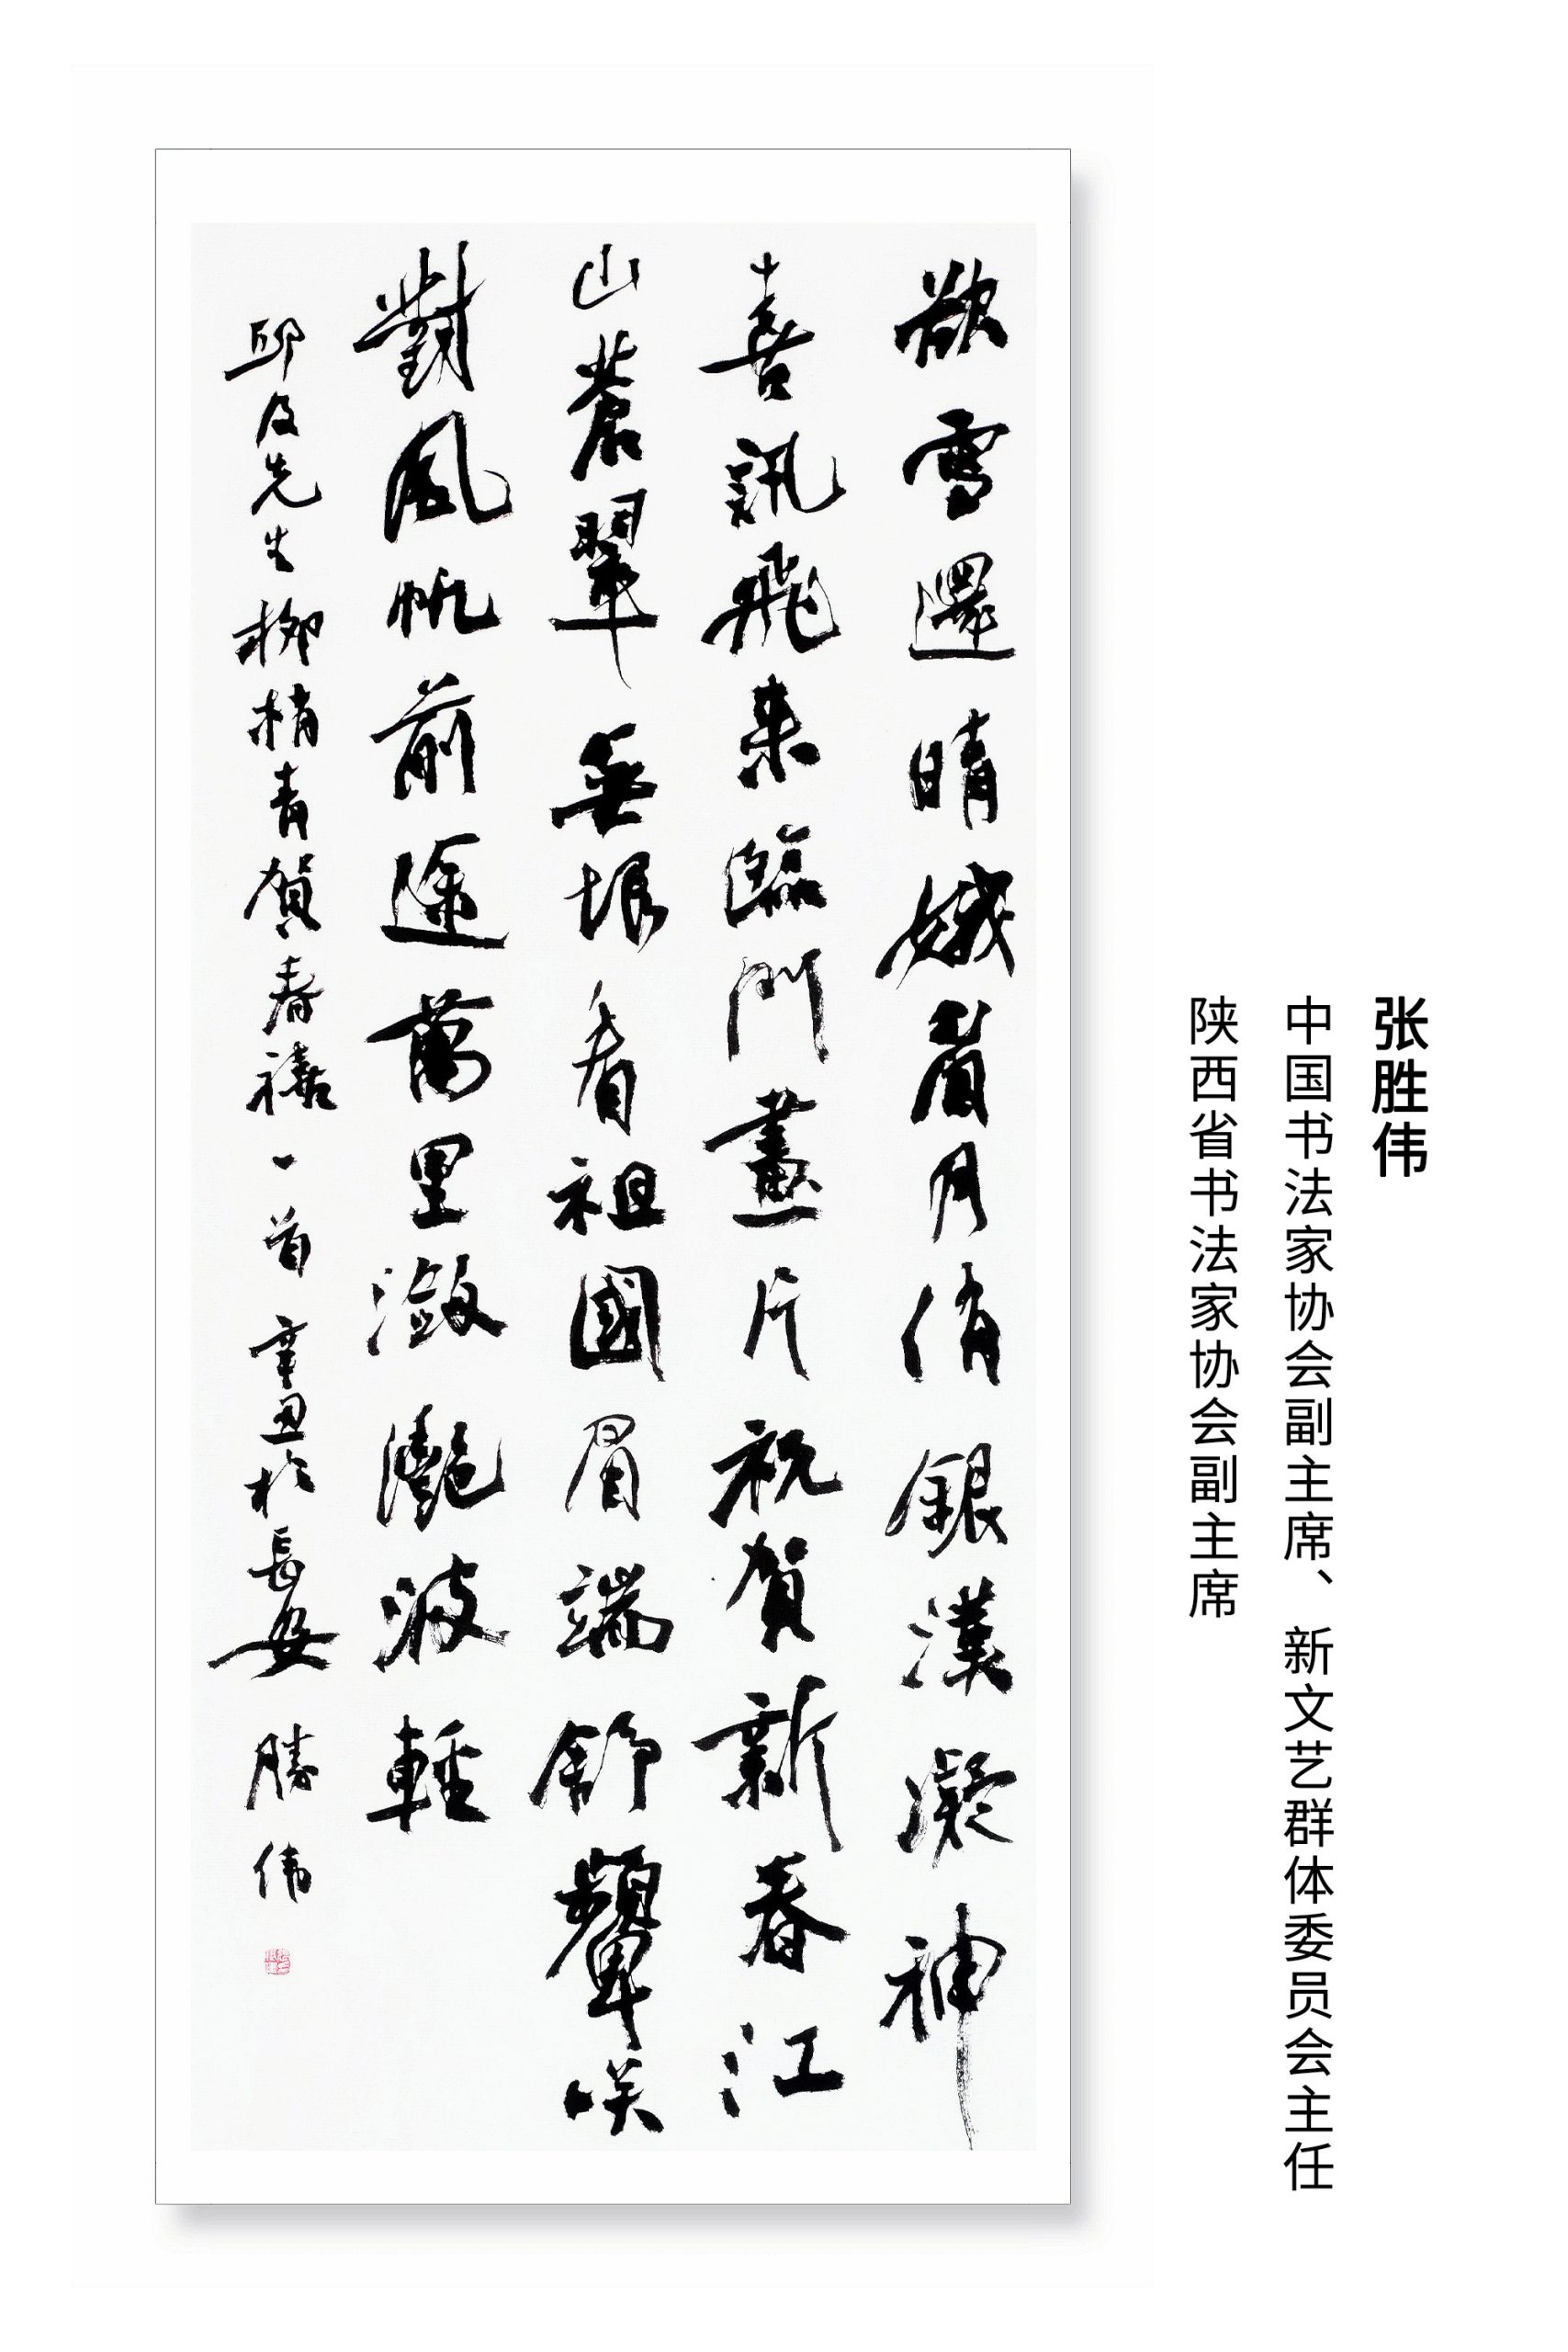 张胜伟
中国书法家协会副主席、新文艺群体委员会主任
陕西省书法家协会副主席
欲雪還晴娥眉月俏銀漢凝神
喜訊飛来臨門畫片祝賀新春江
山蒼翠無垠看祖國眉端舒顰咲
對風帆前途萬里瀲灧波輕
邱及先生柳梢青賀春禧一首辛丑於長安勝伟